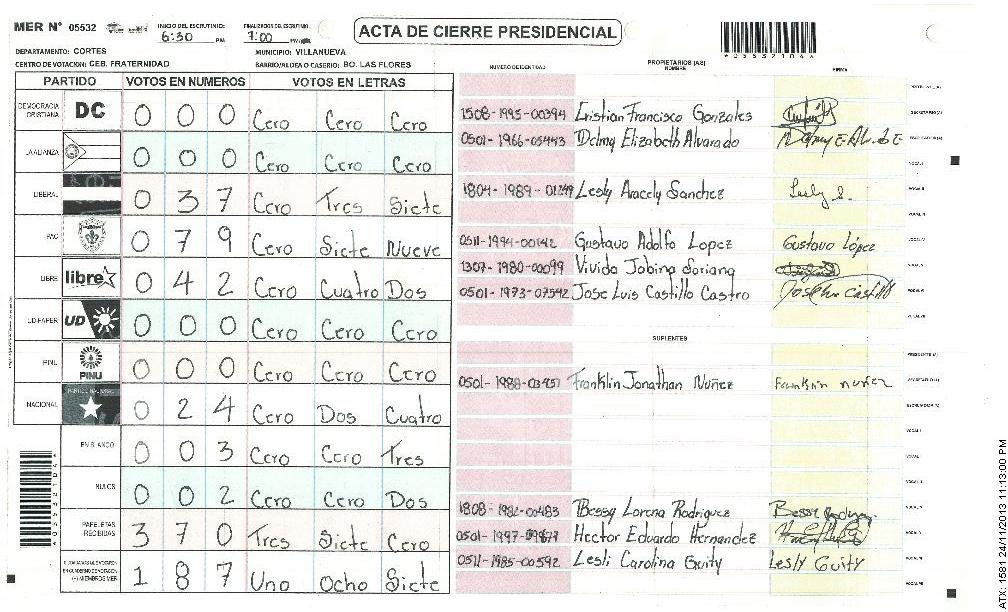 MER N° 05532
INICIO DEL ESCRUTINIO:
6:30 PM
FINALIZACION DEL ESCRUTINIO:
7:00 PM
ACTA DE CIERRE PRESIDENCIAL
*05532104*
DEPARTAMENTO: CORTES
MUNICIPIO: VILLANUEVA
CENTRO DE VOTACION: CEB. FRATERNIDAD
BARRIO/ALDEA O CASERIO: BO. LAS FLORES
PARTIDO VOTOS EN NUMEROS VOTOS EN LETRAS
DEMOCRACIA CRISTIANA DC 0 0 0 Cero Cero Cero
LA ALIANZA 0 0 0 Cero Cero Cero
LIBERAL 0 3 7 Cero Tres Siete
PAC 0 7 9 Cero Siete Nueve
LIBRE libre 0 4 2 Cero Cuatro Dos
UD-FAPER UD 0 0 0 Cero Cero Cero
PINU PINU 0 0 0 Cero Cero Cero
NACIONAL 0 2 4 Cero Dos Cuatro
EN BLANCO 0 0 3 Cero Cero Tres
NULOS 0 0 2 Cero Cero Dos
PAPELETAS RECIBIDAS 3 7 0 Tres Siete Cero
(+) MIEMBROS MER 1 8 7 Uno Ocho Siete
*05532104*
NUMERO DE IDENTIDAD
PROPIETARIOS (AS)
NOMBRE
FIRMA
PRESIDENTE (A)
1508-1995-00394 Cristian Francisco Gonzales SECRETARIO(A)
0501-1966-05443 Delmy Elizabeth Alvarado ESCRUTADOR(A)
VOCAL I
1804-1989- Lesly Aracely Sanchez Lesly S. VOCAL II
VOCAL III
0511-1994-00142 Gustavo Adolfo Lopez Gustavo López VOCAL IV
1307-1980-00099 Vivida Jobina Soriano VOCAL V
0501-1973-07542 Jose Luis Castillo Castro VOCAL VI
VOCAL VII
SUPLENTES
PRESIDENTE (A)
0501-1988-03451 Franklin Jonathan Nuñez Franklin nuñez SECRETARIO (A)
ESCRUTADOR(A)
VOCAL I
VOCAL II
VOCAL III
1808-1982-00483 Bessy Lorena Rodriguez VOCAL IV
0501-1997- Hector Eduardo Hernandez
0511-1985-00592 Lesli Carolina Guity Lesly Guity
ATX: 1581 24/11/2013 11:13:00 PM